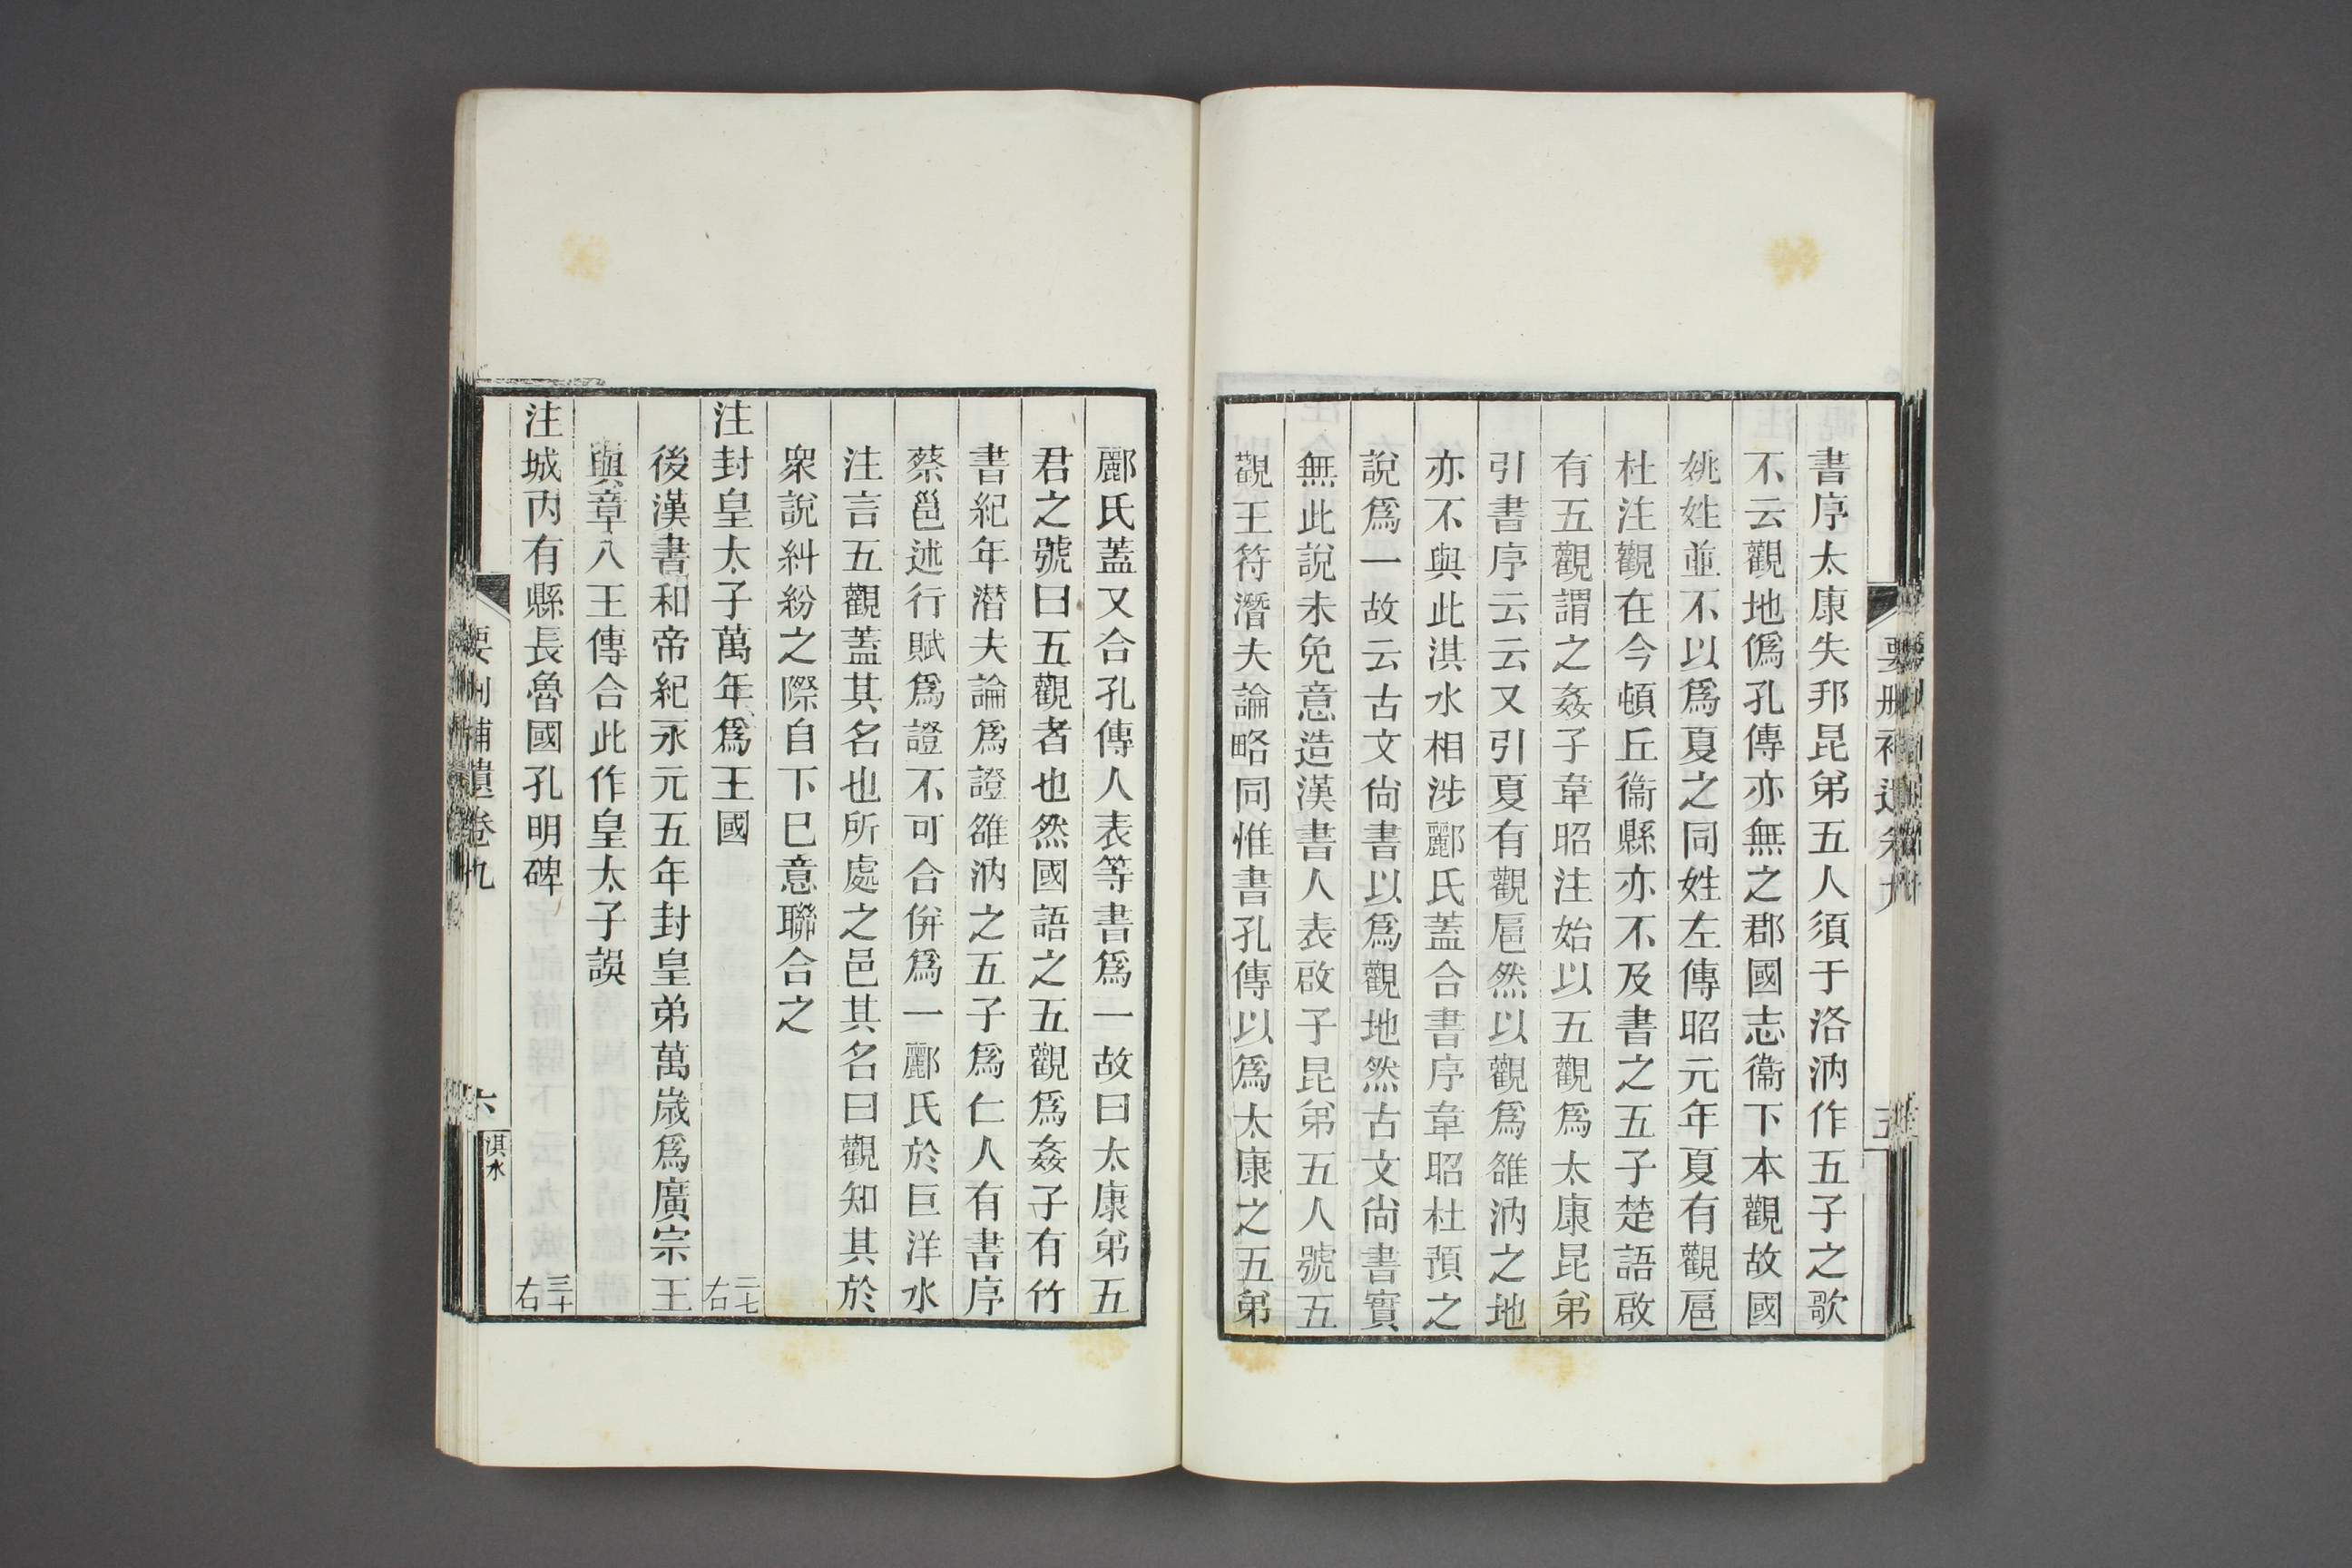 書序太康失邦昆弟五人須于洛汭作五子之歌
不云觀地僞孔傳亦無之郡國志衞下本觀故國
姚姓並不以爲夏之同姓左傳昭元年夏有觀扈
杜注觀在今頓丘衞縣亦不及書之五子楚語啟
有五觀謂之姦子韋昭注始以五觀爲太康昆弟
引書序云云又引夏有觀扈然以觀爲雒汭之地
亦不與此淇水相涉酈氏蓋合書序韋昭杜預之
說爲一故云古文尙書以爲觀地然古文尙書實
無此說未免意造漢書人表啟子昆弟五人號五
觀王符潛夫論略同惟書孔傳以爲太康之五弟
酈氏蓋又合孔傳人表等書爲一故曰太康弟五
君之號曰五觀者也然國語之五觀爲姦子有竹
書紀年潛夫論爲證雒汭之五子爲仁人有書序
蔡邕述行賦爲證不可合併爲一酈氏於巨洋水
注言五觀蓋其名也所處之邑其名曰觀知其於
衆說糾紛之際自下巳意聯合之
注封皇太子萬年爲王國 二七右
後漢書和帝紀永元五年封皇弟萬歲爲廣宗王
與章八王傳合此作皇太子誤
注城丙有縣長魯國孔明碑 三十右
要刪補遺卷九
六
淇水